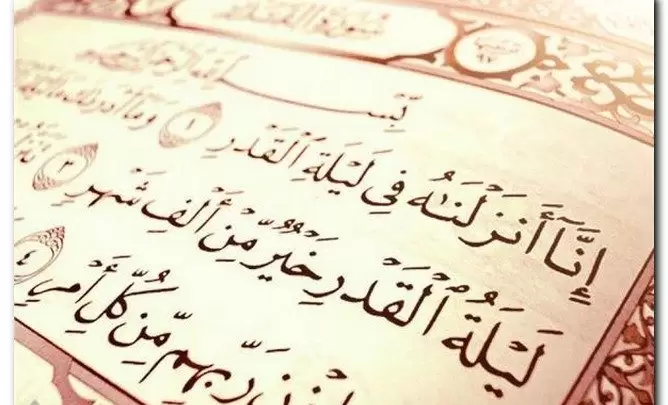 سُورَةُ القَدرِ
بِسْمِ ٱللَّهِ ٱلرَّحْمَٰنِ
إِنَّآ أَنزَلْنَٰهُ فِي لَيْلَةِ ٱلْقَدْرِ ١ وَمَآ أَدْرَىٰكَ
لَيْلَةُ ٱلْقَدْرِ خَيْرٌ مِّنْ أَلْفِ شَهْرٍ ٣
رَبِّهِم مِّن كُلِّ أَمْرٍ ٤